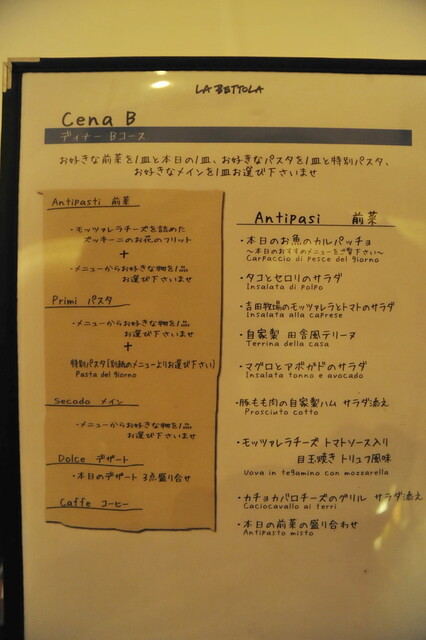 LA BETTOLA
Cena B
ディナー Bコース
お好きな前菜を1皿と本日の1皿、お好きなパスタを1皿と特別パスタ、
お好きなメインを1皿お選び下さいませ
Antipasti 前菜
・モッツァレラチーズを詰めた
ズッキーニのお花のフリット
+
・メニューからお好きな物を1品
お選び下さいませ
Primi パスタ
・メニューからお好きな物を1品
お選び下さいませ
+
特別パスタ(別紙のメニューよりお選び下さい)
Pasta del giorno
Secodo メイン
・メニューからお好きな物を1品
お選び下さいませ
Dolce デザート
・本日のデザート 3点盛り合せ
Caffe コーヒー
Antipasi 前菜
・本日のお魚のカルパッチョ
～本日のおすすめメニューをご覧下さい～
Carpaccio di Pesce del giorno
・タコとセロリのサラダ
Insalata di polpo
・吉田牧場のモッツァレラとトマトのサラダ
Insalata alla caprese
・自家製 田舎風テリーヌ
Terrina della casa
・マグロとアボガドのサラダ
Insalata tonno e avocado
・豚もも肉の自家製ハム サラダ添え
Prosciuto cotto
・モッツァレラチーズ トマトソース入り
目玉焼き トリュフ風味
Uova in tegamino con mozzarella
・カチョカバロチーズのグリル サラダ添え
Caciocavallo ai ferri
・本日の前菜の盛り合わせ
Antipasto misto